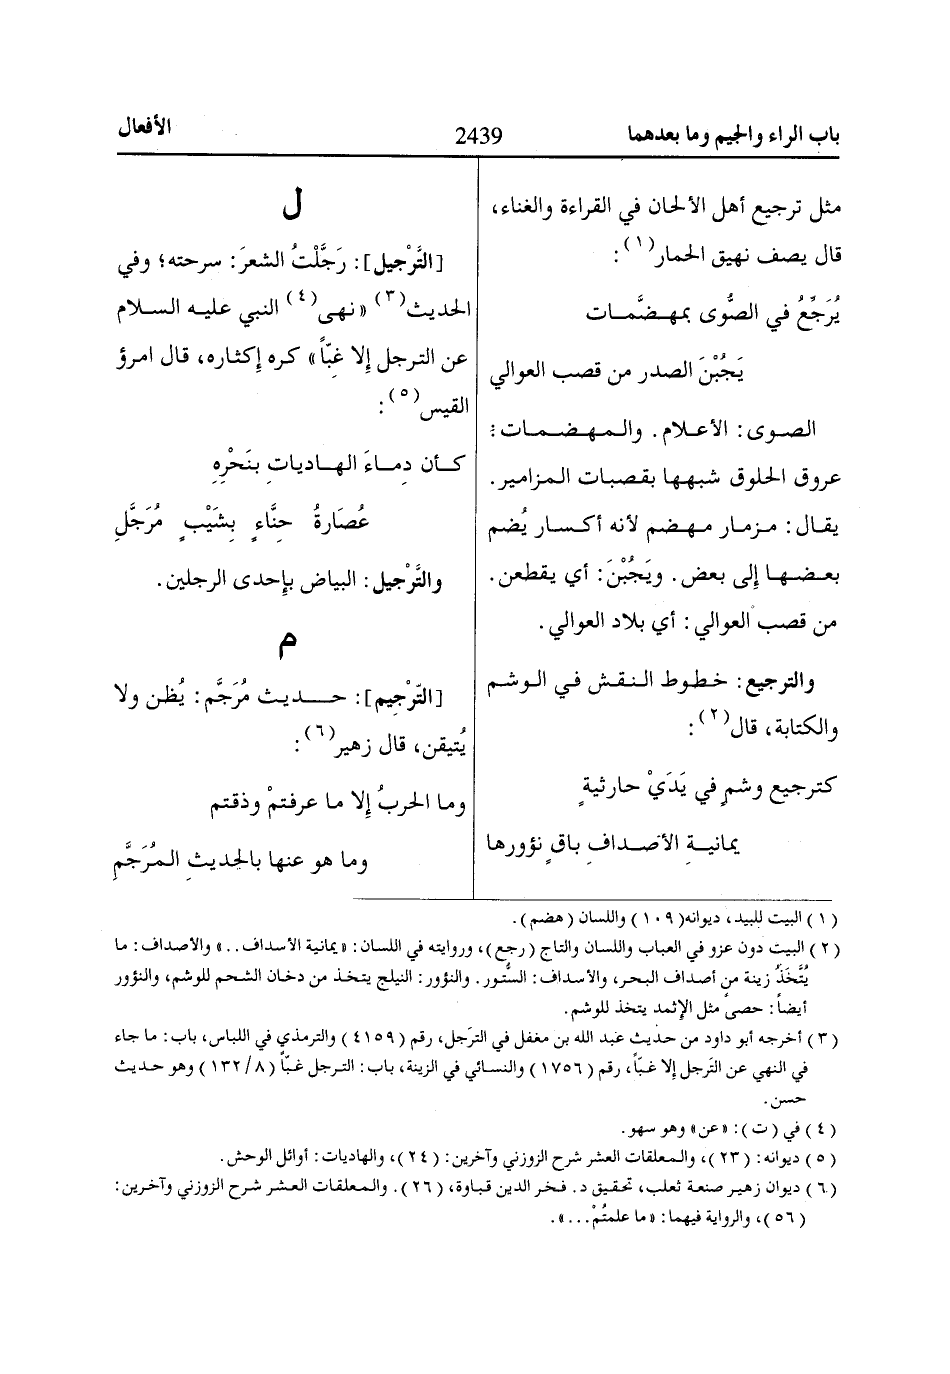 باب الراء والجيم وما بعدهما 2439 الأفعال
مثل ترجيع أهل الألحان في القراءة والغناء،
قال يصف نهيق الحمار(١):
يُرَجِّعُ في الصُّوى بمهضَّمات
يَجُبْنَ الصدر من قصب العوالي
الصوى: الأعلام. والمهضمات:
عروق الحلوق شبهها بقصبات المزامير.
يقال: مزمار مهضم لأنه أكسار يُضم
بعضها إلى بعض. ويَجُبْنَ: أي يقطعن.
من قصب العوالي: أي بلاد العوالي.
والترجيع: خطوط النقش في الوشم
والكتابة، قال(٢):
كترجيع وشمٍ في يَدَيْ حارثيةٍ
يمانيةِ الأصدافِ باقٍ نؤورها
ل
[التَّرْجيل]: رَجَّلْتُ الشعرَ: سرحته؛ وفي
الحديث(٣) «نهى(٤) النبي عليه السلام
عن الترجل إلا غبّاً» كره إكثاره، قال امرؤ
القيس(٥):
كأن دماءَ الهادياتِ بنَحْرِهِ
عُصَارةُ حنَّاءٍ بشَيْبٍ مُرَجَّلِ
والتَّرْجيل: البياض بإحدى الرجلين.
م
[التّرْجيم]: حديث مُرَجَّم: يُظن ولا
يُتيقن، قال زهير(٦):
وما الحربُ إلا ما عرفتمْ وذقتم
وما هو عنها بالحديثِ المُرَجَّمِ
(١) البيت للبيد، ديوانه(١٠٩) واللسان (هضم).
(٢) البيت دون عزو في العباب واللسان والتاج (رجع)، وروايته في اللسان: «يمانية الأسداف..» والأصداف: ما
يُتَّخَذُ زينة من أصداف البحر، والأسداف: السُّتور. والنؤور: النيلج يتخذ من دخان الشحم للوشم، والنؤور
أيضاً: حصىً مثل الإثمد يتخذ للوشم.
(٣) أخرجه أبو داود من حديث عبد الله بن مغفل في الترَجل، رقم (٤١٥٩) والترمذي في اللباس، باب: ما جاء
في النهي عن التَرجل إلا غبّاً، رقم (١٧٥٦) والنسائي في الزينة، باب: الترجل غبّاً (١٣٢/٨) وهو حديث
حسن.
(٤) في (ت): «عن» وهو سهو.
(٥) ديوانه: (٢٣)، والمعلقات العشر شرح الزوزني وآخرين: (٢٤)، والهاديات: أوائل الوحش.
(٦) ديوان زهير صنعة ثعلب، تحقيق د. فخر الدين قباوة، (٢٦). والمعلقات العشر شرح الزوزني وآخرين:
(٥٦)، والرواية فيهما: «ما علمتُمْ...».